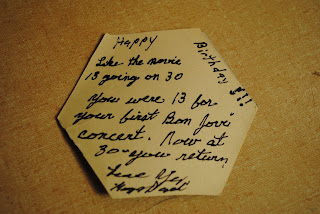 Happy
Birthday !!!
Like the movie
13 going on 30
you were 13 for
your first Bon Jovi
concert. Now at
30-you return
Love